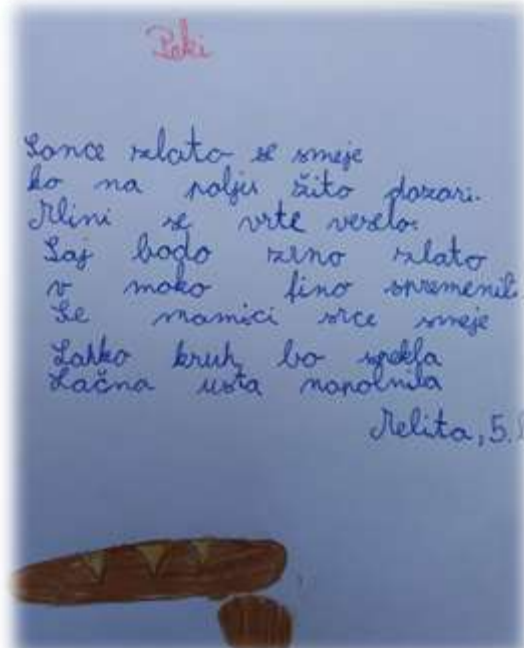 Peki
Sonce zlato se smeje
ko na polju žito dozori.
Mlini se vrte veselo.
Saj bodo zrno zlato
v moko fino spremenil
Se mamici srce smeje
Lahko kruh bo spekla
Lačna usta napolnila
Melita, 5.